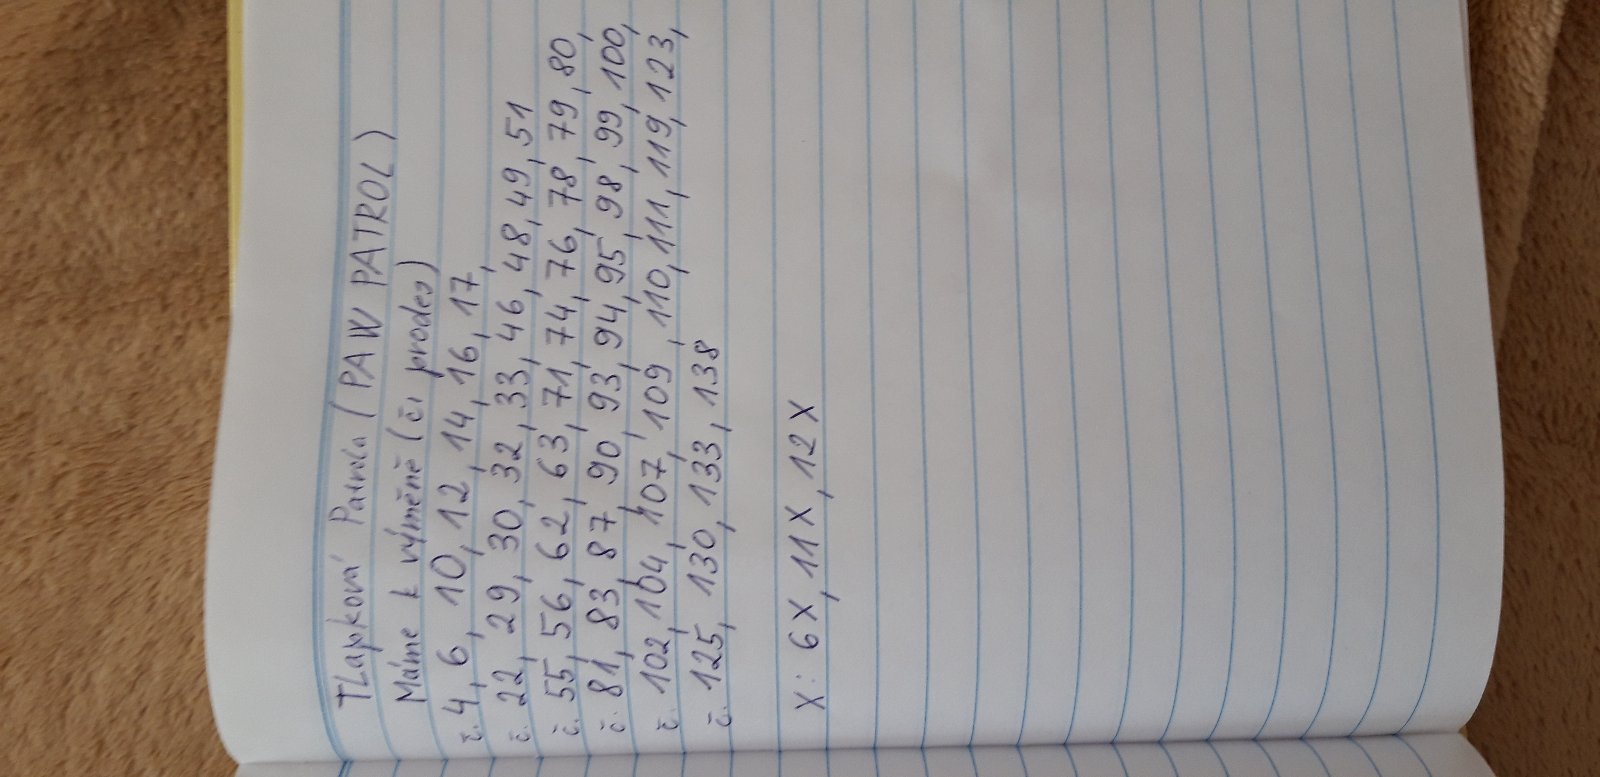 Tlapková Patrola (PAW PATROL)
Máme k výměně (či prodej)
č. 4, 6, 10, 12, 14, 16, 17,
č. 22, 29, 30, 32, 33, 46, 48, 49, 51
č. 55, 56, 62, 63, 71, 74, 76, 78, 79, 80,
č. 81, 83, 87, 90, 93, 94, 95, 98, 99, 100,
č. 102, 104, 107, 109, 110, 111, 119, 123,
č. 125, 130, 133, 138
X: 6X, 11X, 12X